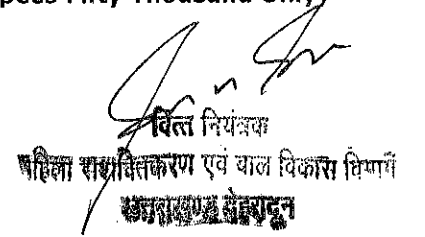 pees Fifty Thousand Only
वित्त नियंत्रक
महिला सशक्तिकरण एवं बाल विकास विभाग
उत्तराखण्ड देहरादून